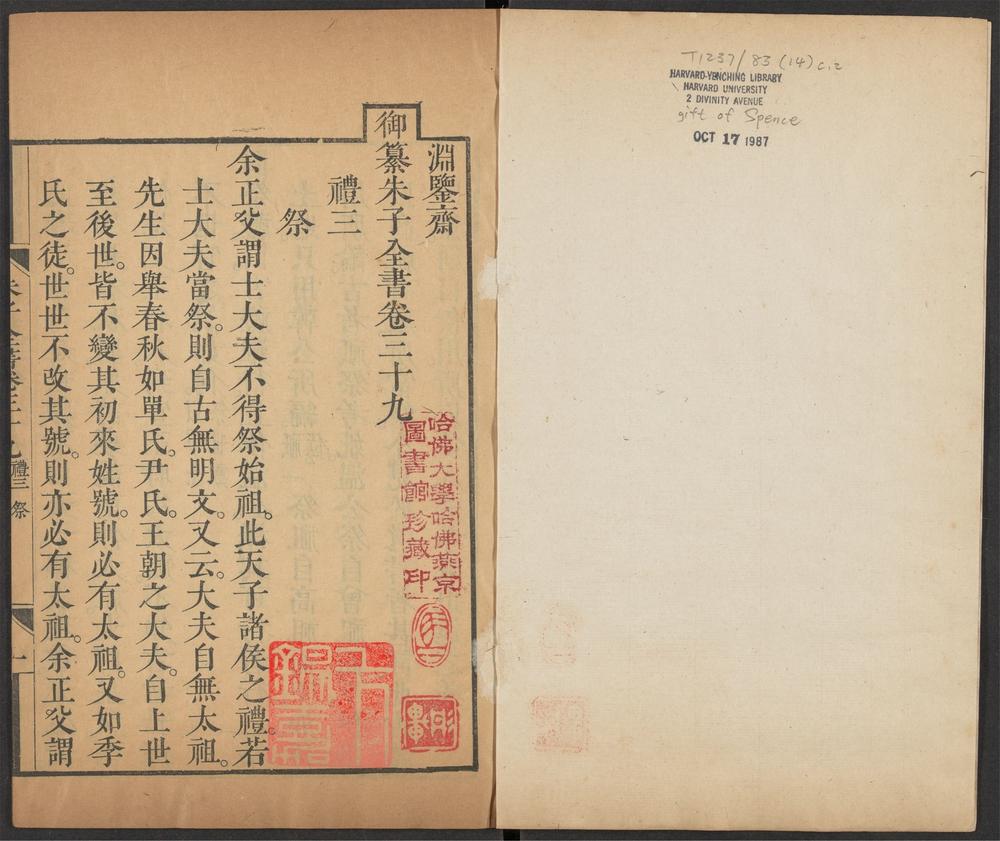 T1237/83 (14) c.2
HARVARD-YENCHING LIBRARY
HARVARD UNIVERSITY
2 DIVINITY AVENUE
gift of Spence
OCT 17 1987
淵鑒齋
御纂朱子全書卷三十九
禮三
祭
余正父謂士大夫不得祭始祖。此天子諸侯之禮。若
士大夫當祭。則自古無明文。又云。大夫自無太祖。
先生因舉春秋如單氏。尹氏。王朝之大夫。自上世
至後世。皆不變其初來姓號。則必有太祖。又如季
氏之徒。世世不改其號。則亦必有太祖。余正父謂
哈佛大學哈佛燕京
圖書館珍藏印
禮三 祭
一